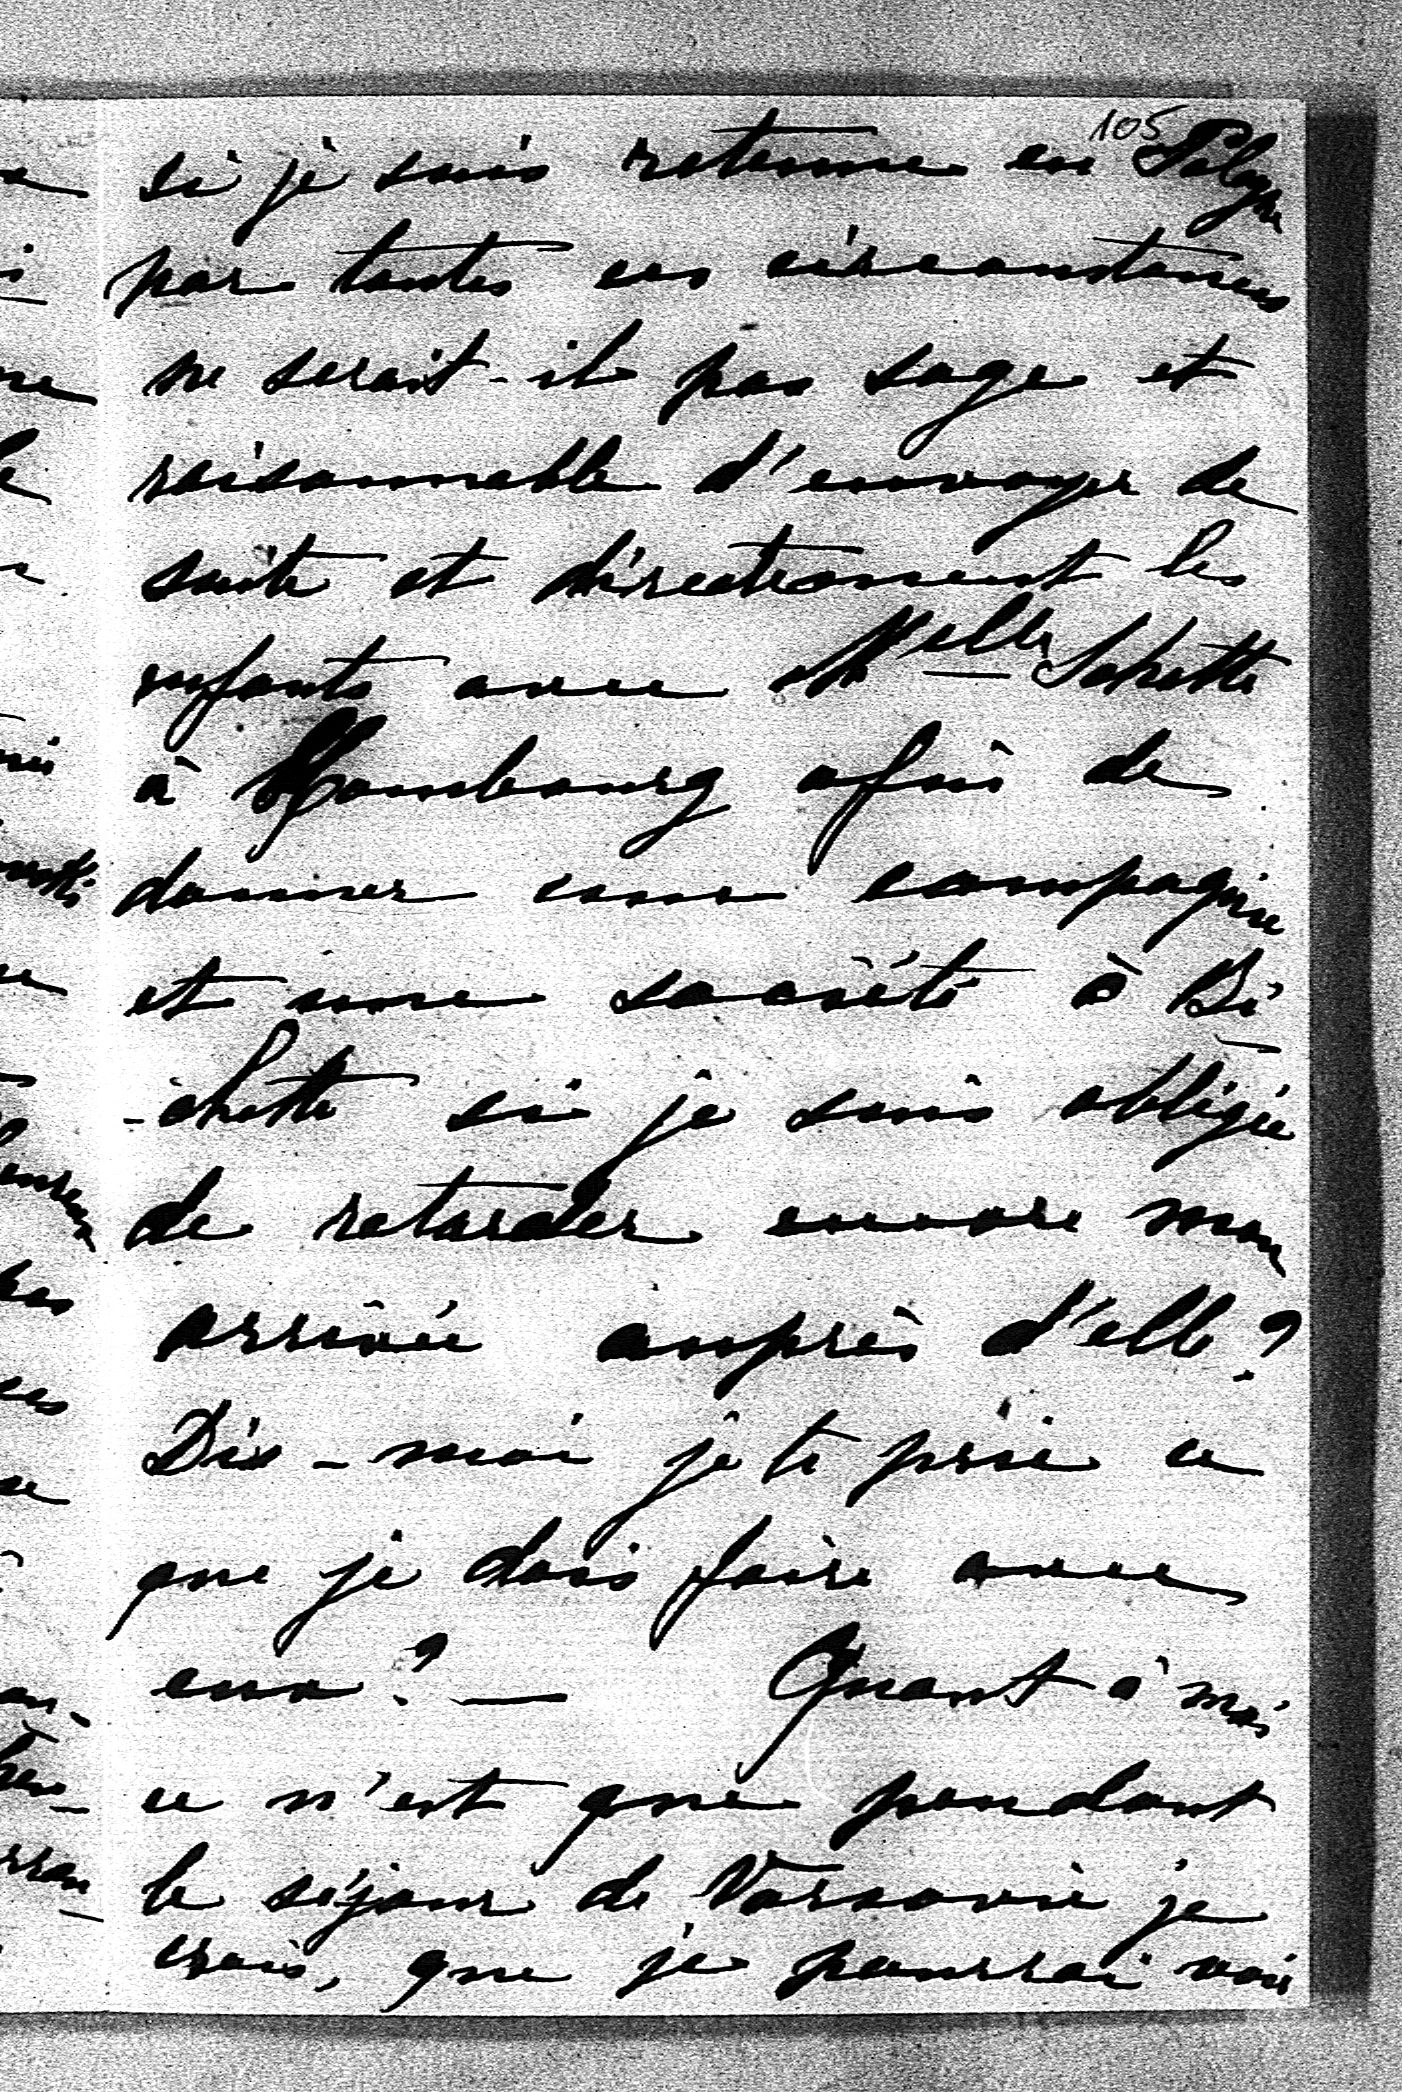 105
si je suis retenue en Pologne
par toutes ces circonstances
ne serait-il pas sage et
raisonnable d'envoyer de
suite et directement les
enfants avec Melle
à Hombourg afin de
donner une compagnie
et une société à Bi-
-chette si je suis obligée
de retarder encore mon
arrivée auprès d'elle?
Dis-moi je te prie ce
que je dois faire avec
eux? — Quant à moi
ce n'est que pendant
le séjour de Varsovie je
crois, que je pourrai voir